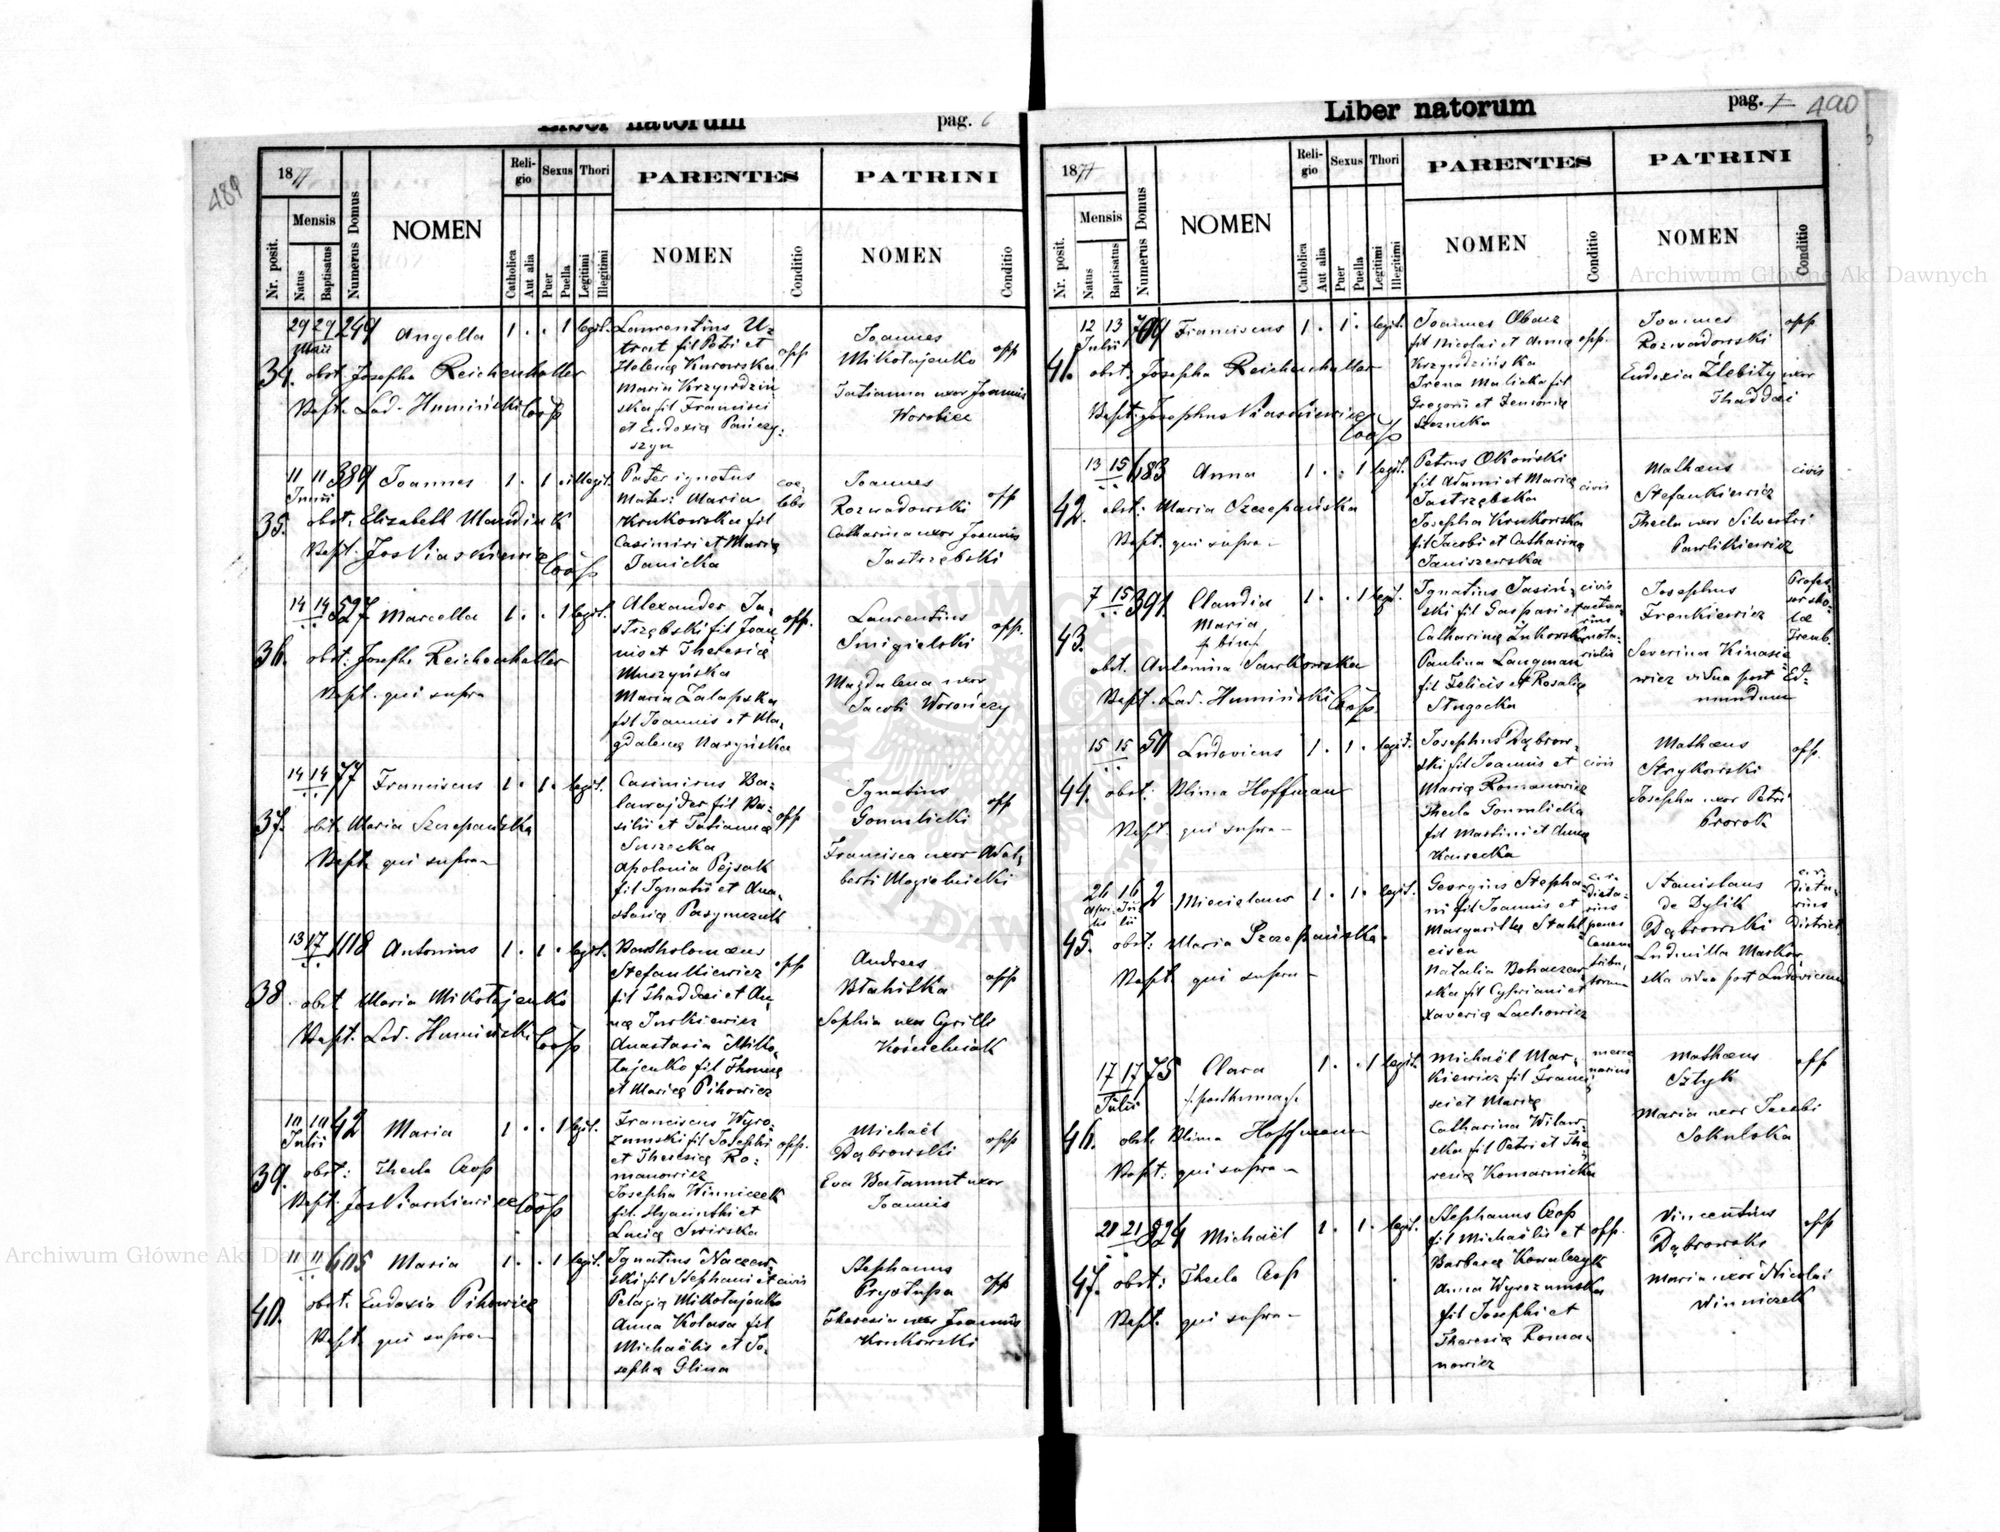 Liber natorum
pag. 6
489
1877
Nr. posit.
Mensis
Natus
Baptisatus
Numerus Domus
NOMEN
Reli-
gio
Catholica
Aut alia
Sexus
Puer
Puella
Thori
Legitimi
Illegitimi
PARENTES
NOMEN
Conditio
PATRINI
NOMEN
Conditio
34.
29 29 249 Angella 1 . . 1 legit.
Maii
obst. Josepha Reichenhalter
Bapt. Lad. Humiński Coop
Laurentius U-
trat fil Petri et
Helena Kurowska
Maria Krzyrdziń
ska fil Francisci
et Eudoxia Pańczy-
szyn
opp
Joannes
Mikołajenko opp
Tatianna uxor Joannis
Worobiec
35.
11 11 389 Joannes 1 . 1 . illegit.
Junii
obst. Elizabeth Mandiuk
Bapt. Jos Kiaskiewicz Coop
Pater ignotus
Materi Maria
Krukowska fil
Casimiri et Maria
Janicka
coe-
lebs
Joannes
Rozwadowski opp
Catharina uxor Joannis
Jastrzębski
36.
14 14 527 Marcella 1 . . 1 legit.
obst: Josepha Reichenhalter
Bapt. qui supra
Alexander Ja-
strzębski fil Joan-
nis et Theresia
Muszyńska
Maria Zalapska
fil Joannis et Ma-
gdalena Naryńska
opp.
Laurentius
Śmigielski opp.
Magdalena uxor
Jacobi Worończy
37.
14 14 77 Franciscus 1 . 1 . legit.
obst. Maria Szczepańska
Bapt. qui supra
Casimirus Ba-
lawajder fil Ba-
silii et Tatianna
Suszka
Apolonia Pejsak
fil Ignatii et Ana-
stasia Pasymczuk
opp
Ignatius
Gonulicki opp
Francisca uxor Adal-
berti Mogielnicki
38.
13 17 1118 Antonius 1 . 1 . legit.
obst Maria Mikołajenko
Bapt. Lad. Humiński Coop
Bartholomaeus
Stefankiewicz
fil Thaddaei et An-
na Turkiewicz
Anastasia Miko-
łajenko fil Thoma
et Maria Pihowicz
opp
Andreas
Błahitka opp
Sophia uxor Cyrilli
Kościelniak
39.
10 10 42 Maria 1 . . 1 legit.
Julii
obst: Thecla Crop
Bapt. Jos Kiaskiewicz Coop
Franciscus Wyro-
zumski fil Josephi
et Theresia Ro-
manowicz
Josepha Winniczek
fil. Hyacinthi et
Lucia Swirska
opp.
Michaël
Dąbrowski opp
Eva Bałamut uxor
Joannis
40.
11 11 605 Maria 1 . . 1 legit.
obst. Eudoxia Pihowicz
Bapt. qui supra
Ignatius Naczew-
ski fil Stephani et
Pelagia Mikołajenko
Anna Kolasa fil
Michaëlis et Jo-
sepha Glina
civis
Stephanus
Prystupa opp
Theresia uxor Joannis
Krukowski
Liber natorum
pag. 7 490
1877
Nr. posit.
Mensis
Natus
Baptisatus
Numerus Domus
NOMEN
Reli-
gio
Catholica
Aut alia
Sexus
Puer
Puella
Thori
Legitimi
Illegitimi
PARENTES
NOMEN
Conditio
PATRINI
NOMEN
Conditio
41.
12 13 709 Franciscus 1 . 1 . legit.
Julii
obst. Josepha Reichenhalter
Bapt. Josephus Kiaskiewicz
Coop
Joannes Obacz
fil Nicolai et Anna
Krzyrdzińska
Irena Malicka fil
Gregorii et Zenonia
opp.
Joannes
Rozwadowski
Eudoxia Źlebity uxor
Thaddaei
opp
42.
13 15 683 Anna 1 . . 1 legit.
obst. Maria Szczepańska
Bapt. qui supra
Petrus Okoński
fil Adami et Maria
Jastrzębska
Josepha Krukowska
fil Jacobi et Catharina
Janiszewska
civis
Mathaeus
Stefankiewicz
Thecla uxor Silvestri
Pawlikiewicz
civis
43.
7 15 391 Claudia 1 . . 1 legit.
Maria
obst. Antonina Sawkowska
Bapt. Lad. Humiński Coop.
Ignatius Jasiń-
ski fil Gaspari et
Catharina Żukowska
Paulina Langman
fil Felicis et Rosalia
Stugocka
civis
Josephus
Frenkiewicz
Severina Kinasie-
wicz vidua post Ed-
mundum
44.
15 15 50 Ludovicus 1 . 1 . legit.
obst: Blima Hoffman
Bapt. qui supra
Josephus Dąbrow-
ski fil Joannis et
Maria Romanowicz
Thecla Gonulicka
fil Martini et Anna
Kosecka
civis
Mathaeus
Strykowski
Josepha uxor Petri
Prorok
opp.
45.
26 16 2 Miecislaus 1 . 1 . legit.
obst: Maria Szczepańska
Bapt. qui supra
Georgius Stepha-
ni fil Joannis et
Margaritha Stahl-
eisen
Natalia Bohaczew-
ska fil Cypriani et
Xaveria Lachowicz
Stanislaus
de Dylik
Dąbrowski
Ludmilla Markow-
ska vidua post Ludovicum
46.
17 17 75 Clara 1 . . 1 legit.
Julii
/:posthuma:/
obst. Blima Hoffmann
Bapt: qui supra
Michaël Mar-
kiewicz fil Franci-
sci et Maria
Catharina Wilaw-
ska fil Petri et The-
resia Komarnicka
merce-
narius
Mathaeus
Sztyk
Maria uxor Jacobi
Sokulska
opp
47.
20 21 824 Michaël 1 . 1 . legit.
obst: Thecla Crop
Bapt. qui supra
Stephanus Crop
fil Michaëlis et
Barbara Kowalczyk
Anna Wyrozumska
fil Josephi et
Theresia Roma-
nowicz
opp.
Vincentius
Dąbrowski
Maria uxor Nicolai
Winniczek
opp
Archiwum Główne Akt Dawnych
Archiwum Główne Akt Dawnych